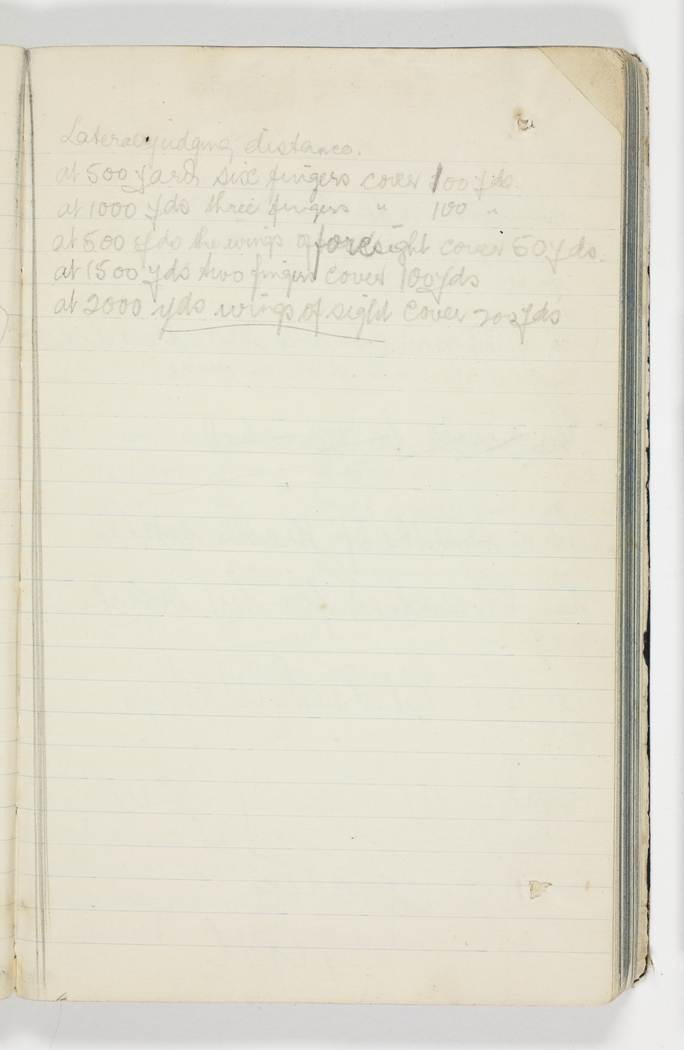 Lateral judging distance.
at 500 yards six fingers cover 100 yds.
at 1000 yds three fingers " 100 "
at 500 yds the wings of foresight cover 50 yds.
at 1500 yds two fingers cover 100 yds
at 2000 yds wings of sight cover 200 yds